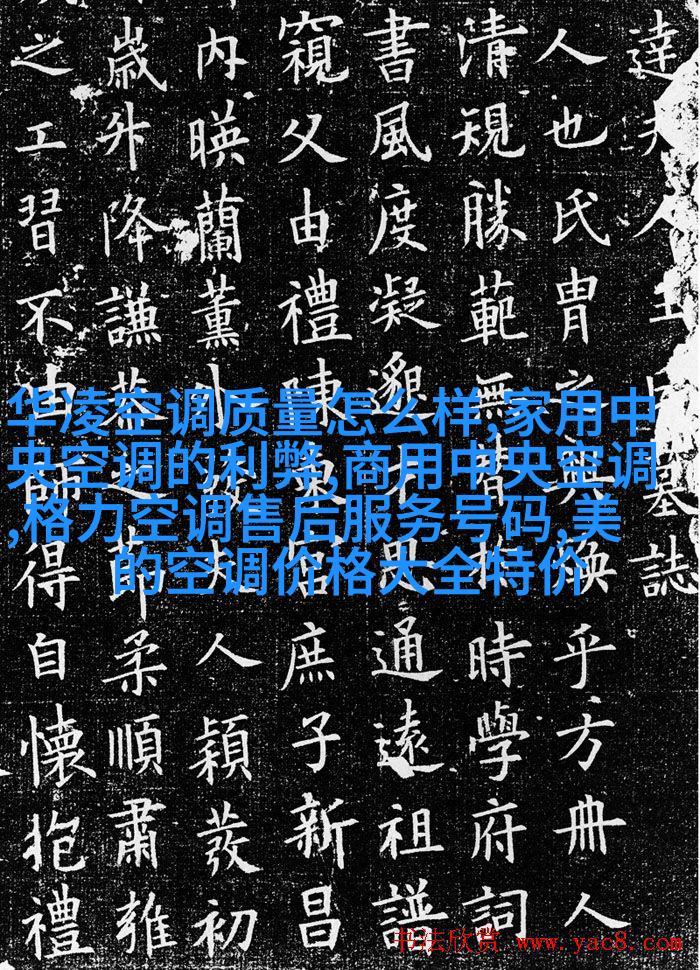 達夫人王墓誌
人也氏冑之興煥乎方冊人
清規勝範無時學府詞
書風度凝邈通遠祖譜
窺父由禮陳庶子新昌
内暎蘭薰外夫人穎發初
歲升降謙恭節柔順肅雍
之工習不由師得自懷抱禮
华凌空调质量怎么样,家用中
央空调的利弊,商用中央空调
,格力空调售后服务号码,美
的空调价格大全特价
书法欣赏 www.yac8.com